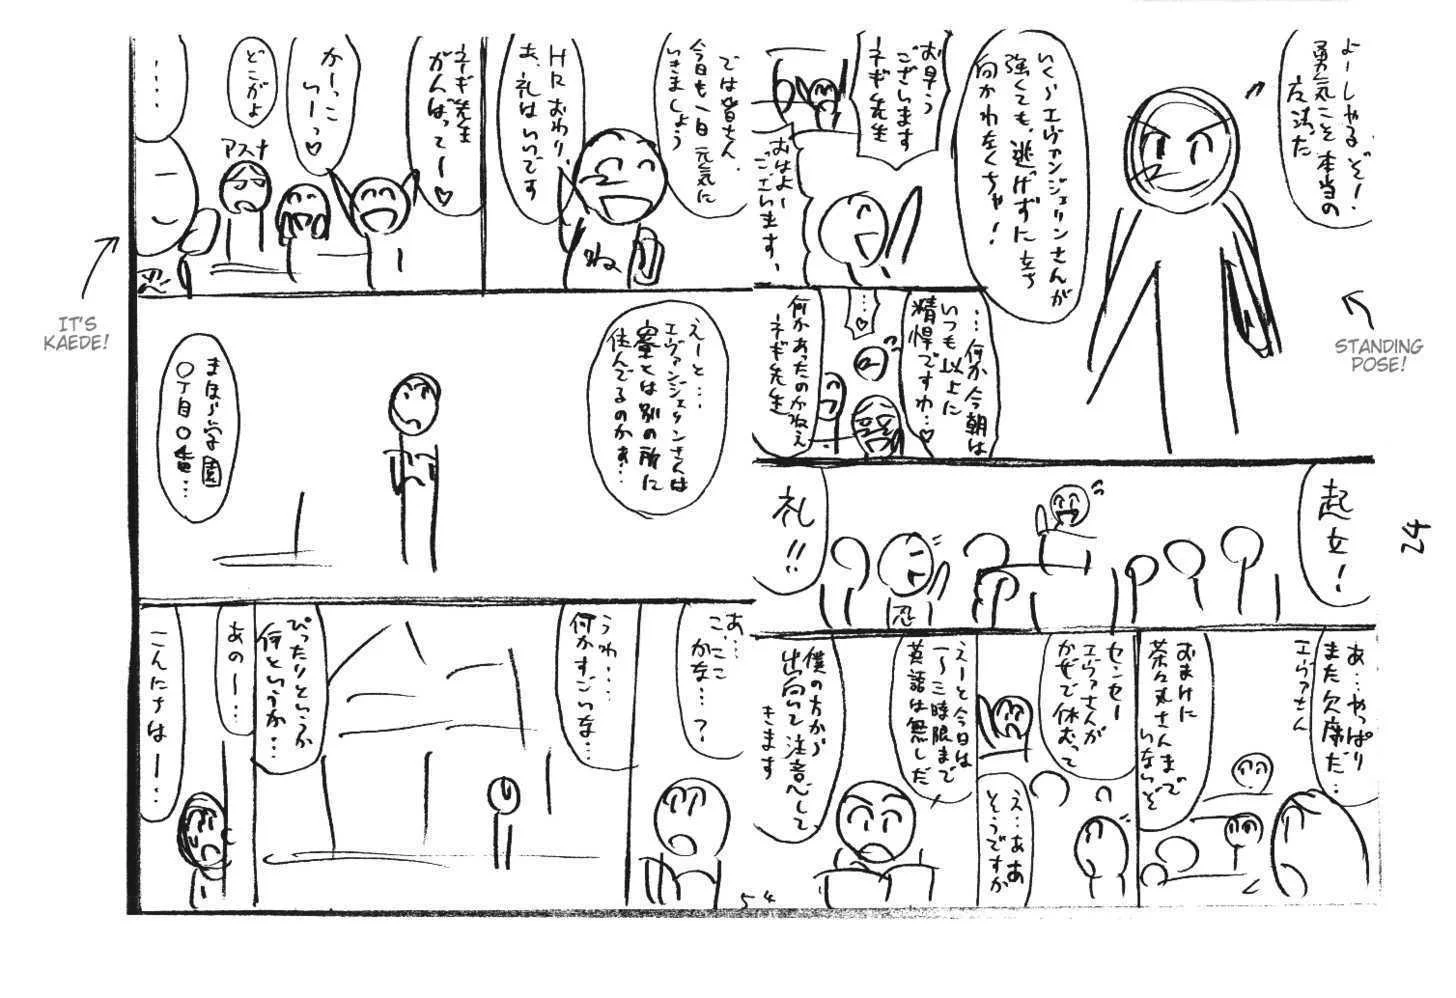 よーしやるぞ!
勇気こそ本当の
魔法だ
いくらエヴァンジェリンさんが
強くても、逃げずに立ち
向かわなくちゃ!
お早う
ございます
ネギ先生
おはよー
ございます、
STANDING
POSE!
…何か今朝は
いつも以上に
精悍ですわ…♡
…♡
何かあったのかねえ
ネギ先生
起立!
礼!!
忍
24
あ…やっぱり
また欠席だ…
エヴァさん
おまけに
茶々丸さんまで
いないぞ
センセー
エヴァさんが
かぜで休むって
え…ああ
そうですか
えーと今日は
一〜三時限まで
英語は無しだ
僕の方から
出向いて注意して
きます
では皆さん、
今日も一日元気に
いきましょう
HRおわり、
あ、礼はいいです
ね
ネギ先生
がんばってー♡
かーっこ
いーっ♡
どこがよ
アスナ
……
IT'S
KAEDE!
えーと…
エヴァンジェリンさんは
寮とは別の所に
住んでるのかぁ…
まほら学園
○丁目○番…
あ…
ここ
かな…?
うわ…
何かすごいな…
ぴったりというか
何というか…
あの〜…
こんにちはー…
54